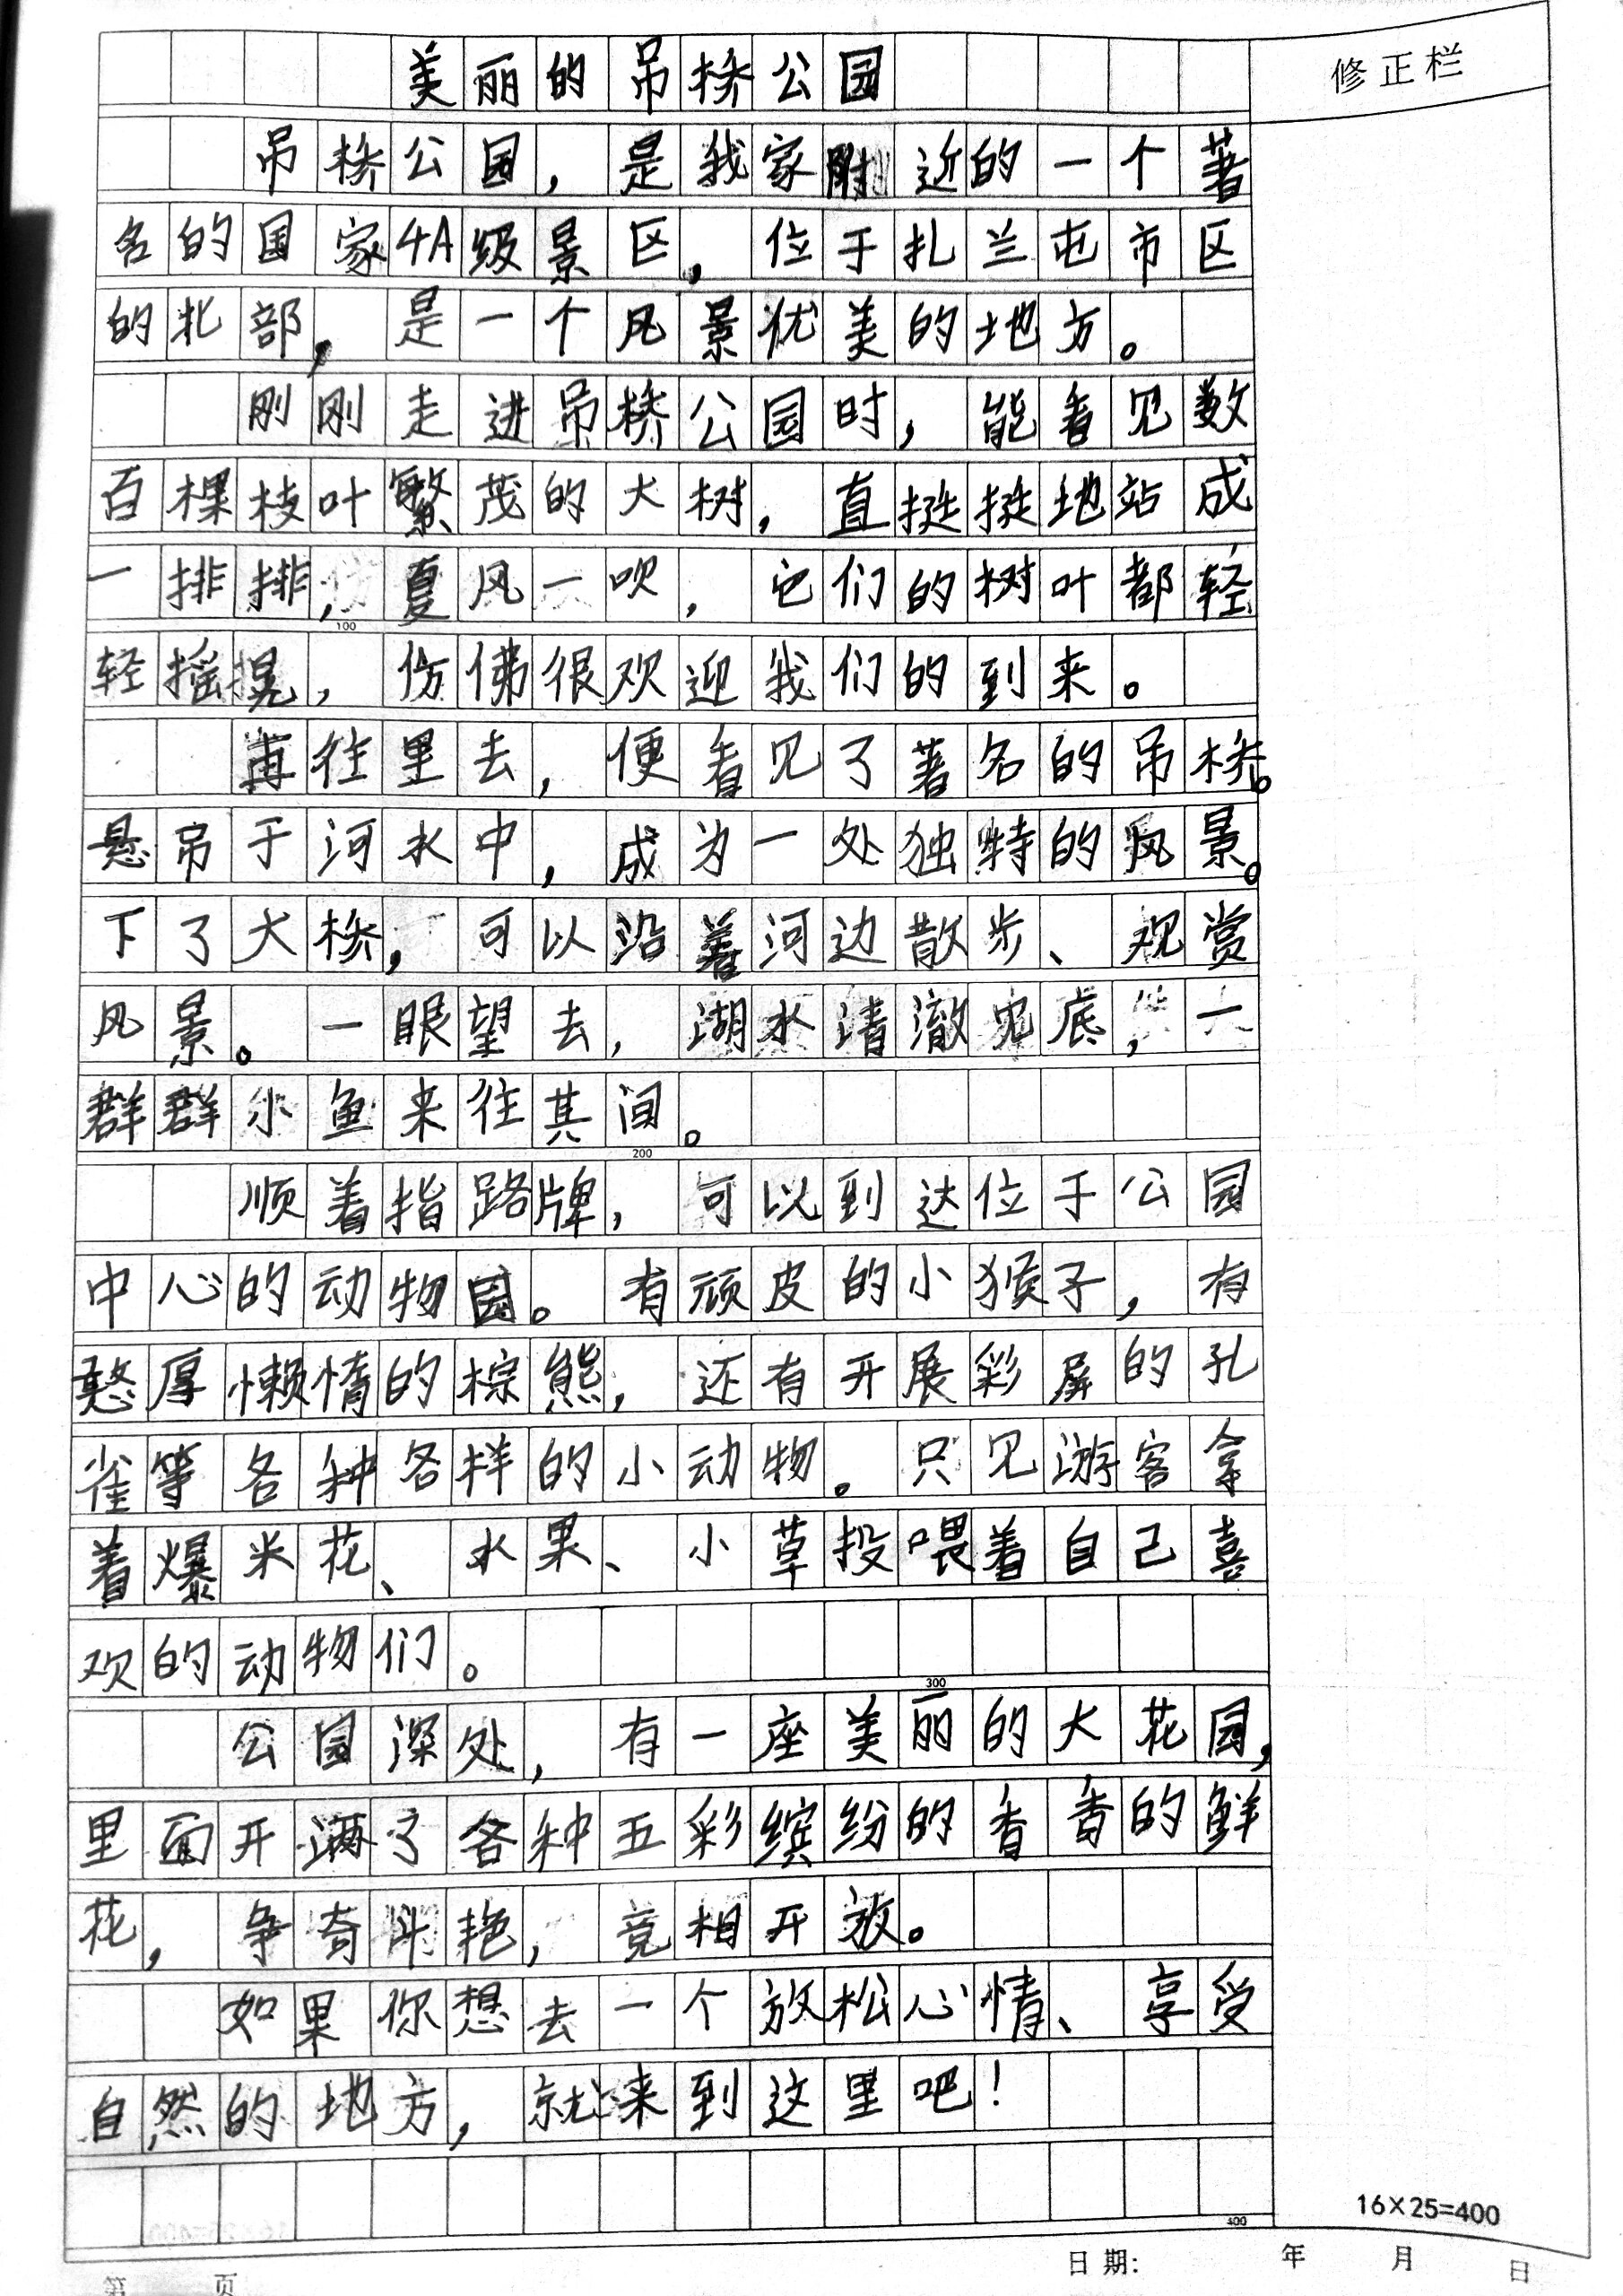 美丽的吊桥公园
修正栏
吊桥公园，是我家附近的一个著
名的国家4A级景区，位于扎兰屯市区
的北部，是一个风景优美的地方。
刚刚走进吊桥公园时，能看见数
百棵枝叶繁茂的大树，直挺挺地站成
一排排，夏风一吹，它们的树叶都轻
100
轻摇晃，仿佛很欢迎我们的到来。
再往里去，便看见了著名的吊桥。
悬吊于河水中，成为一处独特的风景。
下了大桥，可以沿着河边散步、观赏
风景。一眼望去，湖水清澈见底，一
群群小鱼来往其间。
200
顺着指路牌，可以到达位于公园
中心的动物园。有顽皮的小猴子，有
憨厚懒惰的棕熊，还有开展彩屏的孔
雀等各种各样的小动物。只见游客拿
着爆米花、水果、小草投喂着自己喜
欢的动物们。
300
公园深处，有一座美丽的大花园，
里面开满了各种五彩缤纷的香香的鲜
花，争奇斗艳，竞相开放。
如果你想去一个放松心情、享受
自然的地方，就来到这里吧！
16×25=400
400
日期： 年 月 日
第 页